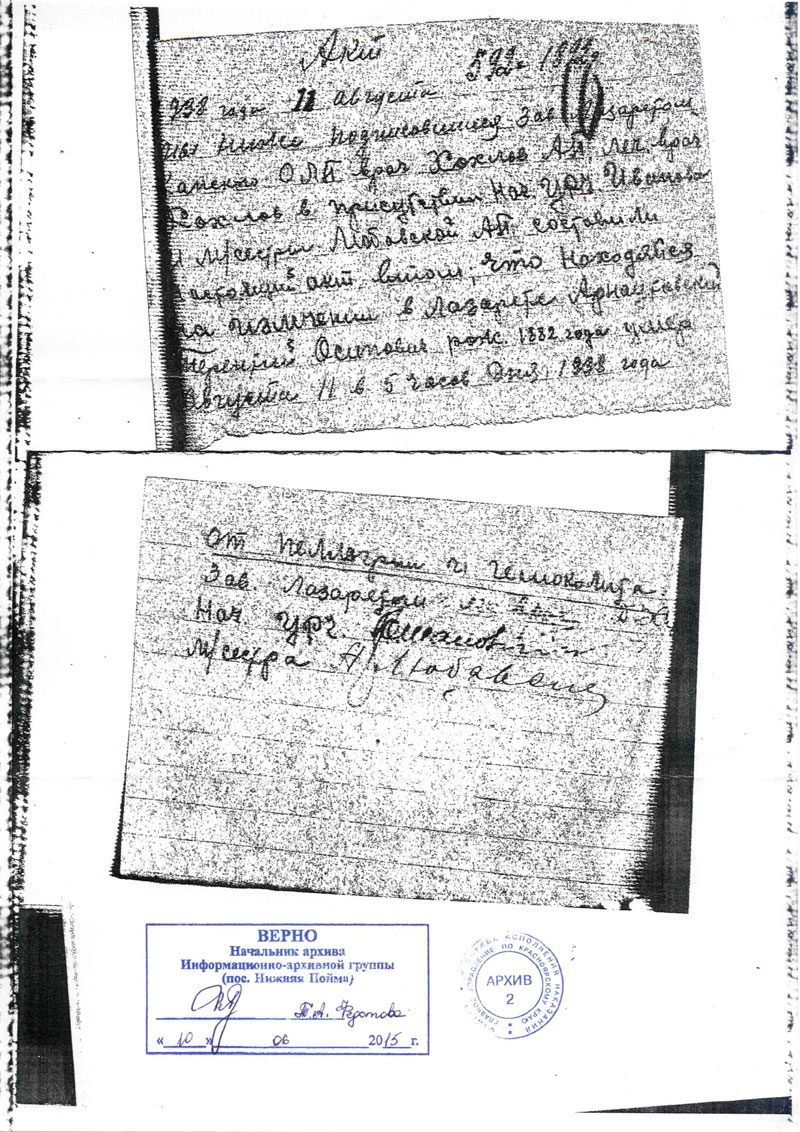 Акт
1938 года 11 августа
мы ниже подписавшиеся Зав лазаретом
ОЛП врач Хохлов АП, леч врач
Хохлов в присутствии Нач. УРЧ Иванова
и м/сестры Любавской АП. составили
настоящий акт втом, что находясь
на излечении в лазарете
Терентий Осипович рож. 1882 года умер
Августа 11 в 5 часов дня, 1938 года
от пеллагрии и гемоколита.
Зав. Лазаретом
Нач. УРЧ.
М/сестра А Любавская
ВЕРНО
Начальник архива
Информационно-архивной группы
(пос. Нижняя Пойма)
Т.А. Федотова
« 10 » 06 2015 г.
ГЛАВНОЕ УПРАВЛЕНИЕ ПО КРАСНОЯРСКОМУ КРАЮ
АРХИВ
2